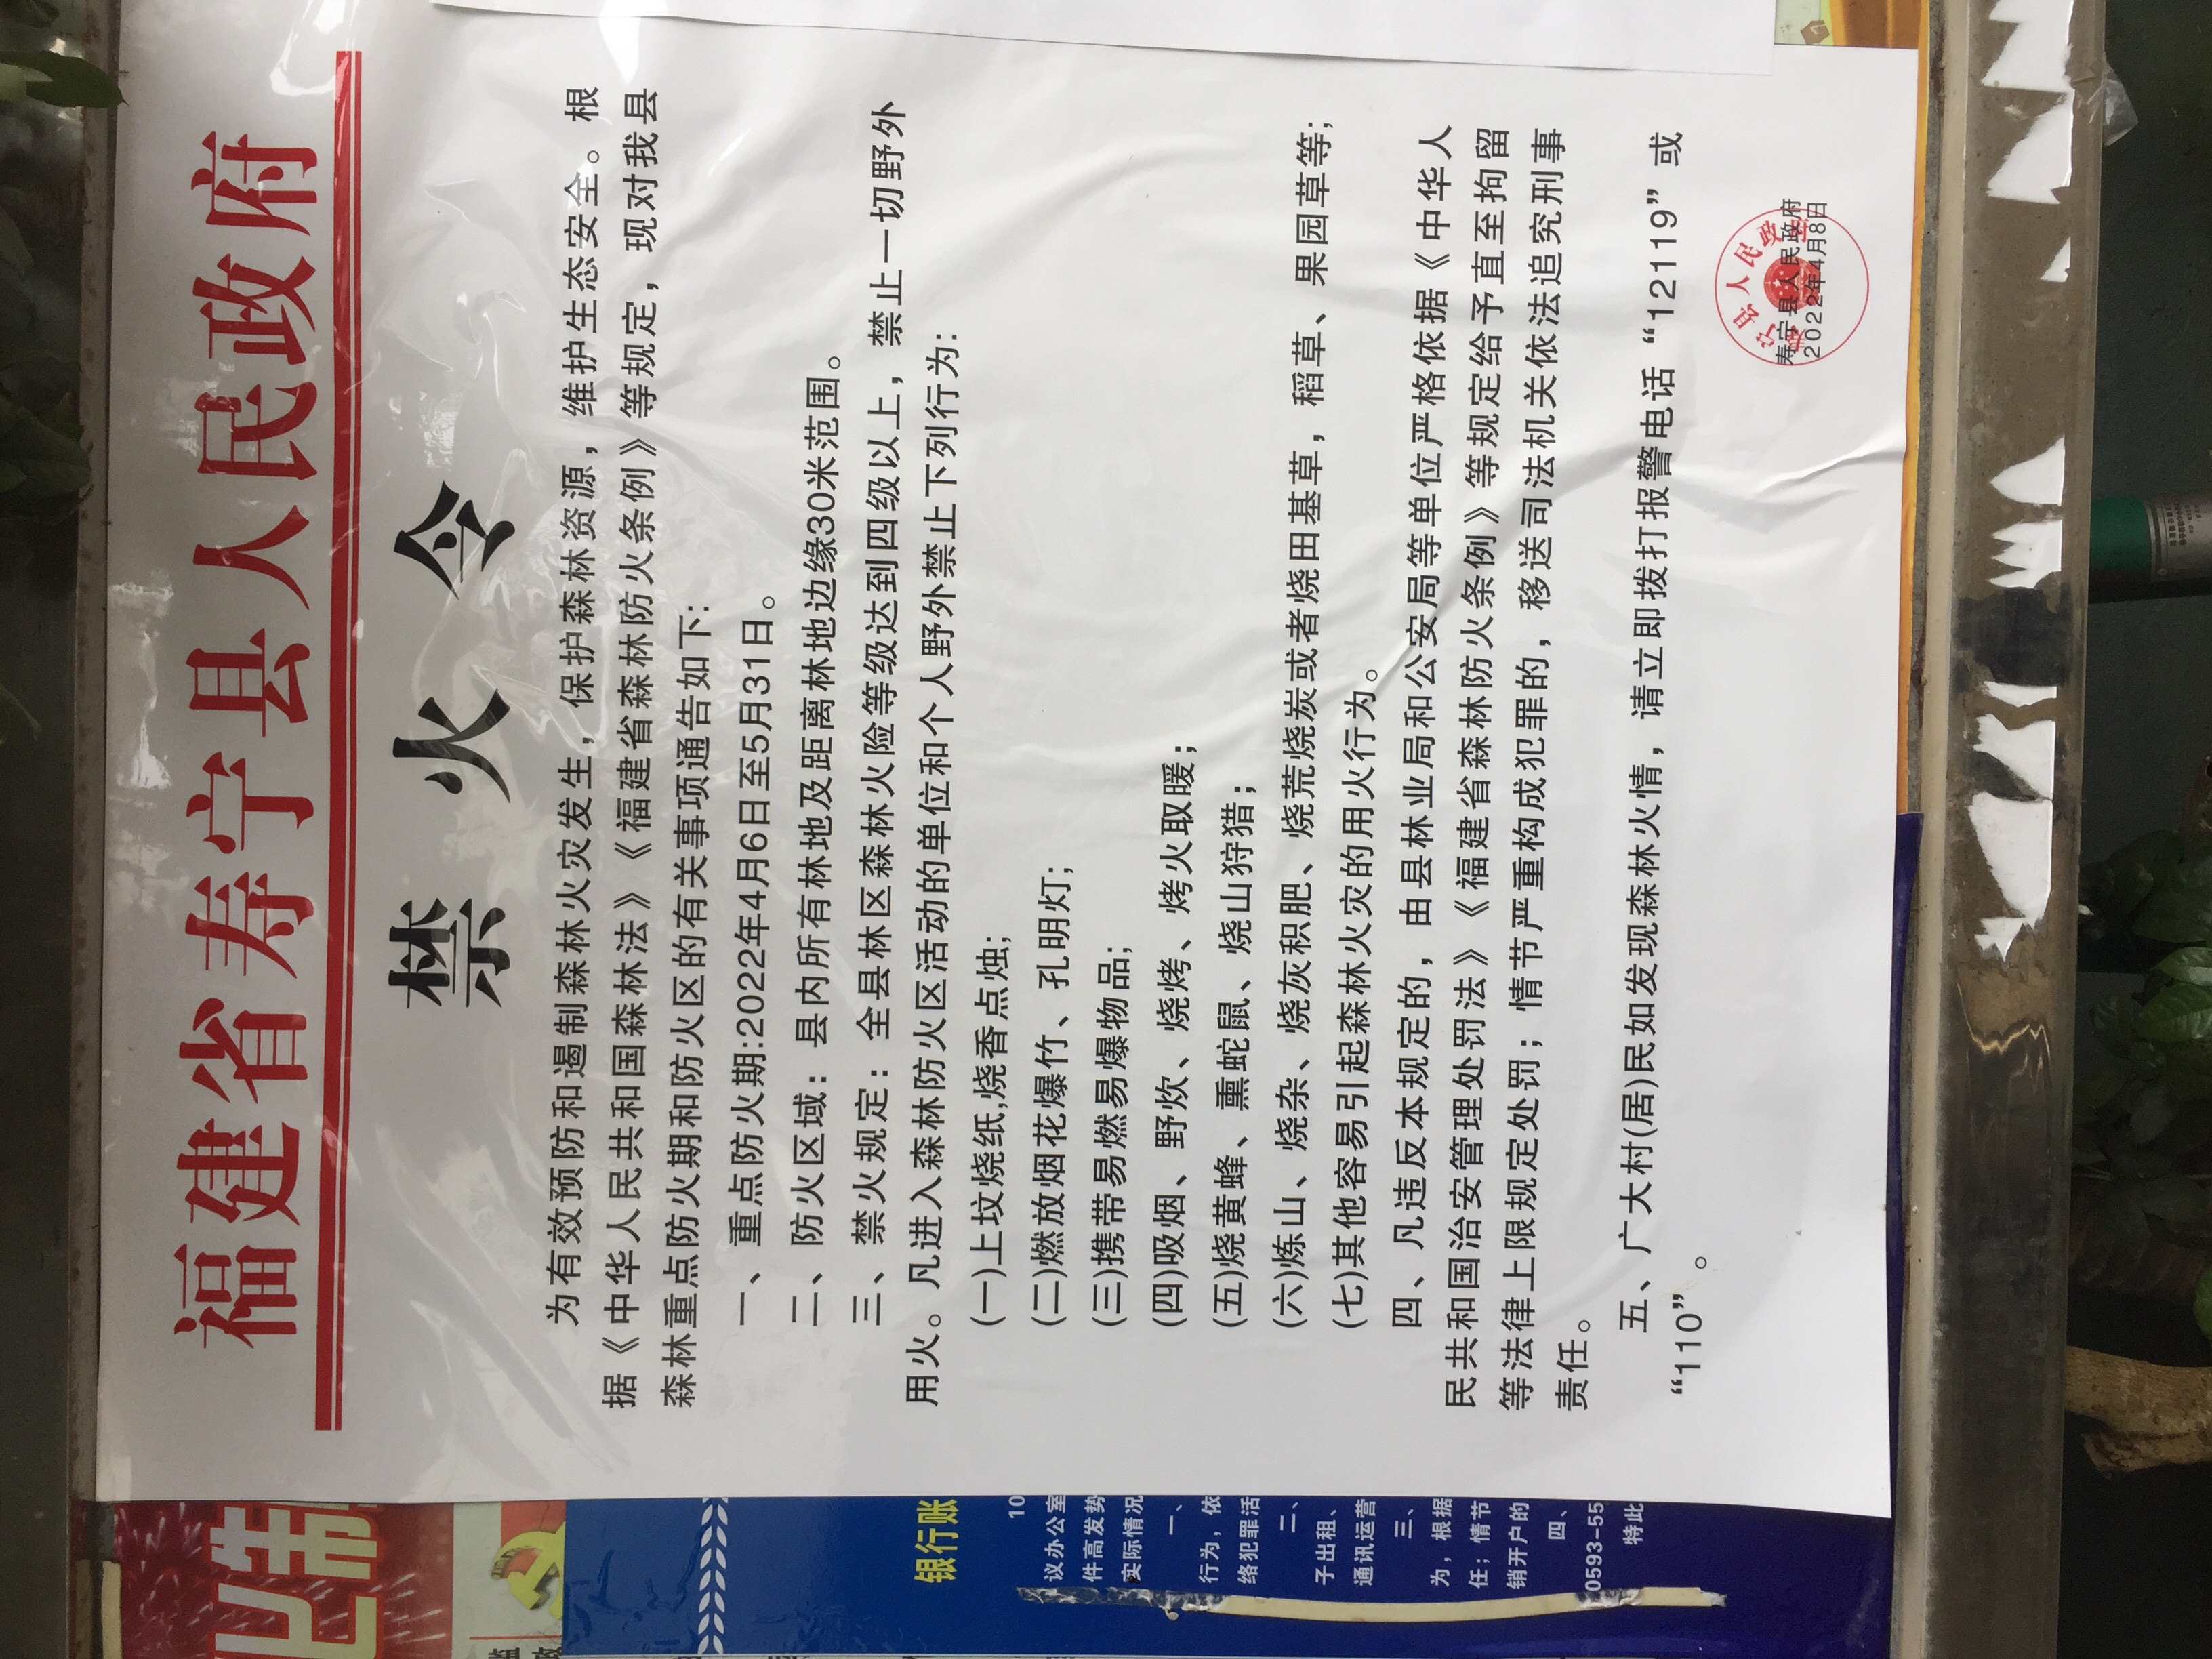 福建省寿宁县人民政府
禁火令
为有效预防和遏制森林火灾发生，保护森林资源，维护生态安全。根
据《中华人民共和国森林法》《福建省森林防火条例》等规定，现对我县
森林重点防火期和防火区的有关事项通告如下：
一、重点防火期:2022年4月6日至5月31日。
二、防火区域：县内所有林地及距离林地边缘30米范围。
三、禁火规定：全县林区森林火险等级达到四级以上，禁止一切野外
用火。凡进入森林防火区活动的单位和个人野外禁止下列行为：
(一)上坟烧纸,烧香点烛；
(二)燃放烟花爆竹、孔明灯；
(三)携带易燃易爆物品；
(四)吸烟、野炊、烧烤、烤火取暖；
(五)烧黄蜂、熏蛇鼠、烧山狩猎；
(六)炼山、烧杂、烧灰积肥、烧荒烧炭或者烧田基草，稻草、果园草等；
(七)其他容易引起森林火灾的用火行为。
四、凡违反本规定的，由县林业局和公安局等单位严格依据《中华人
民共和国治安管理处罚法》《福建省森林防火条例》等规定给予直至拘留
等法律上限规定处罚；情节严重构成犯罪的，移送司法机关依法追究刑事
责任。
五、广大村(居)民如发现森林火情，请立即拨打报警电话“12119”或
“110”。
寿宁县人民政府
2022年4月8日
银行账
10
议办公室
件高发势
实际情况
一、
行为，依
络犯罪活
二、
子出租、
通讯运营
三、
为，根据
任；情节
销开户的
四、
0593-55
特此